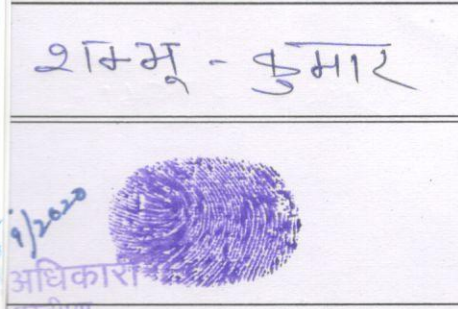 शम्भू - कुमार
9/2020
अधिकारी